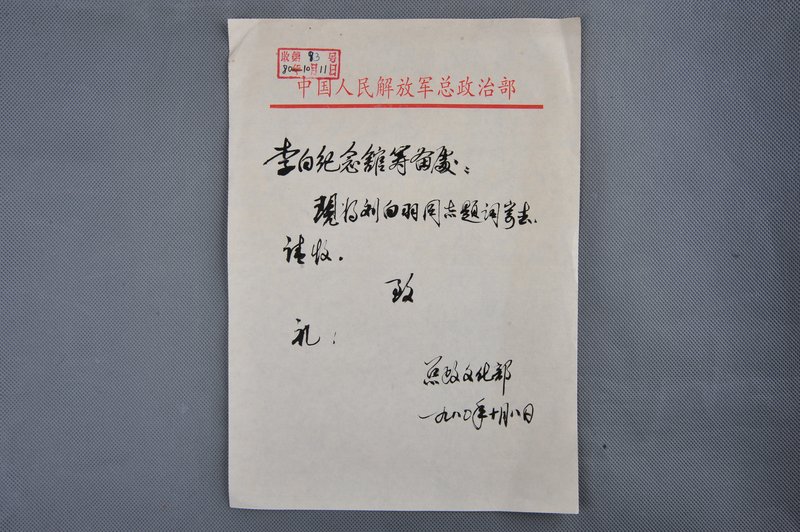 收艺 93 号
80年10月11日
中国人民解放军总政治部
李白纪念舘筹备处：
現将刘白羽同志题词寄去.
请收.
致
礼!
总政文化部
一九八〇年十月八日